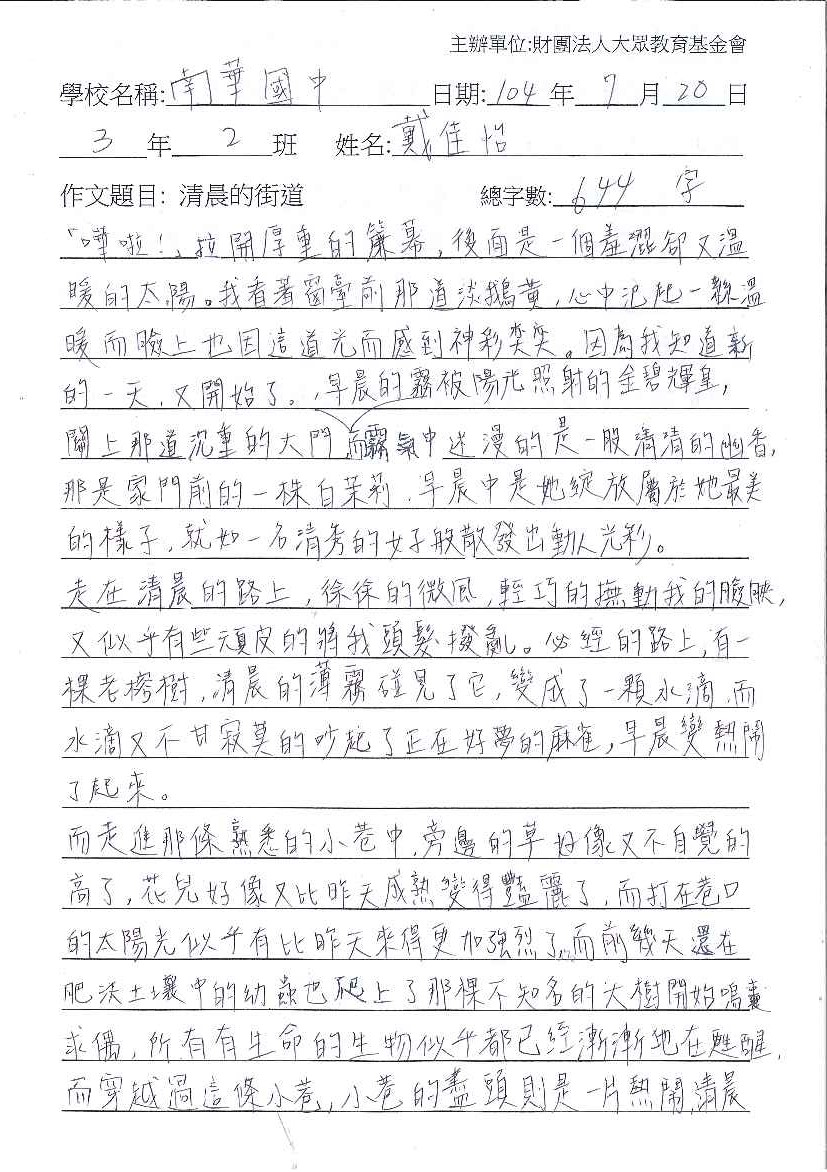 主辦單位:財團法人大眾教育基金會
學校名稱: 南華國中 日期: 104 年 7 月 20 日
3 年 2 班 姓名: 戴佳怡
作文題目: 清晨的街道 總字數: 644 字
「嘩啦!」拉開厚重的簾幕,後面是一個羞澀卻又溫
暖的太陽。我看著窗臺前那道淡鵝黃,心中泛起一絲溫
暖而臉上也因這道光而感到神彩奕奕。因為我知道新
的一天,又開始了。,早晨的霧被陽光照射的金碧輝皇,
關上那道沉重的大門而霧氣中迷漫的是一股清清的幽香,
那是家門前的一株白茉莉,早晨中是她綻放屬於她最美
的樣子,就如一名清秀的女子般散發出動人光彩。
走在清晨的路上,徐徐的微風,輕巧的撫動我的臉,
又似乎有些頑皮的將我頭髮撥亂。必經的路上,有一
棵老榕樹,清晨的薄霧碰見了它,變成了一顆水滴,而
水滴又不甘寂莫的吵起了正在好夢的麻雀,早晨變熱鬧
了起來。
而走進那條熟悉的小巷中,旁邊的草好像又不自覺的
高了,花兒好像又比昨天成熟變得豔麗了,而打在巷口
的太陽光似乎有比昨天來得更加強烈了,而前幾天還在
肥沃土壤中的幼蟲也爬上了那裸不知名的大樹開始鳴囊
求偶,所有有生命的生物似乎都已經漸漸地在甦醒,
而穿越過這條小巷,小巷的盡頭則是一片熱鬧,清晨